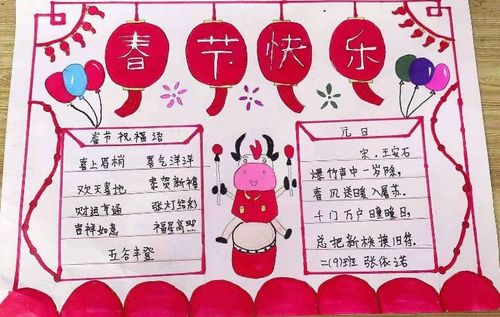 春节快乐
春节祝福语
喜上眉梢 喜气洋洋
欢天喜地 恭贺新禧
财运亨通 张灯结彩
吉祥如意 福星高照
五谷丰登
元日
宋.王安石
爆竹声中一岁除,
春风送暖入屠苏.
千门万户曈曈日,
总把新桃换旧符.
二(9)班 张依诺